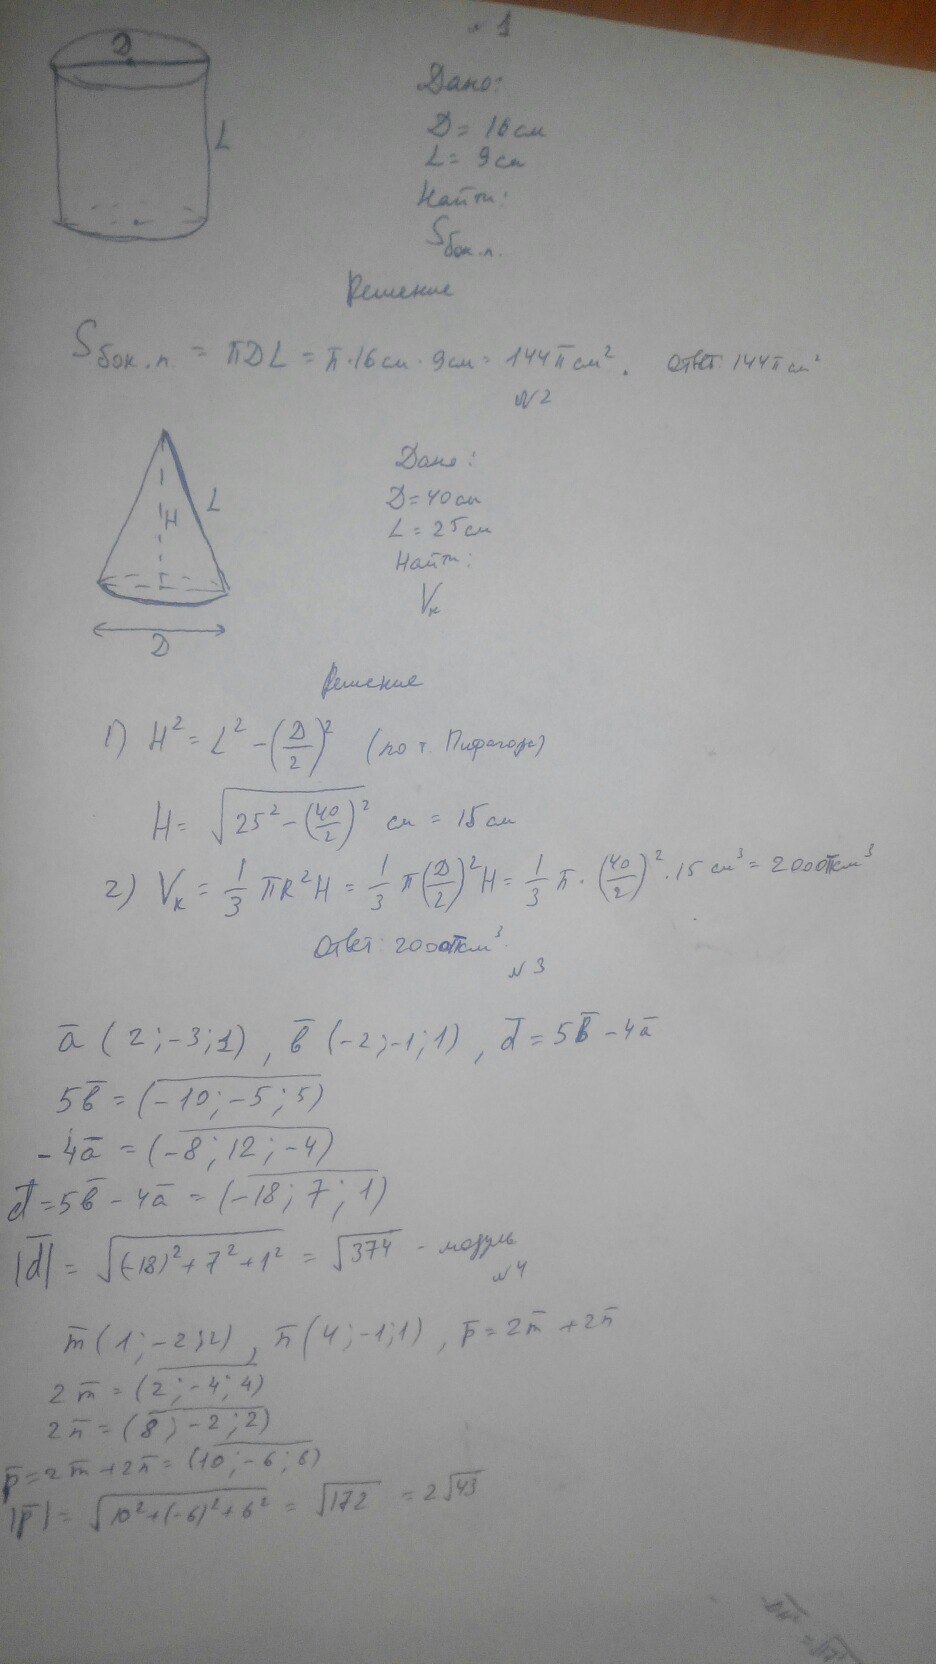 № 1
D
L
Дано:
D = 16 см
L = 9 см
Найти:
Sбок.п.
Решение
Sбок.п. = πDL = π·16см·9см = 144π см². Ответ: 144π см²
№2
H
L
D
Дано:
D = 40 см
L = 25 см
Найти:
Vк
Решение
1) H² = L² - (D/2)² (по т. Пифагора)
H = √(25² - (40/2)²) см = 15 см
2) Vк = 1/3 πR²H = 1/3 π(D/2)²H = 1/3 π·(40/2)²·15 см³ = 2000π см³
Ответ: 2000π см³.
№3
a̅ (2; -3; 1), b̅ (-2; -1; 1), d̅ = 5b̅ - 4a̅
5b̅ = (-10; -5; 5)
-4a̅ = (-8; 12; -4)
d̅ = 5b̅ - 4a̅ = (-18; 7; 1)
|d̅| = √((-18)² + 7² + 1²) = √374 - модуль
№4
m̅ (1; -2; 2), n̅ (4; -1; 1), p̅ = 2m̅ + 2n̅
2m̅ = (2; -4; 4)
2n̅ = (8; -2; 2)
p̅ = 2m̅ + 2n̅ = (10; -6; 6)
|p̅| = √(10² + (-6)² + 6²) = √172 = 2√43